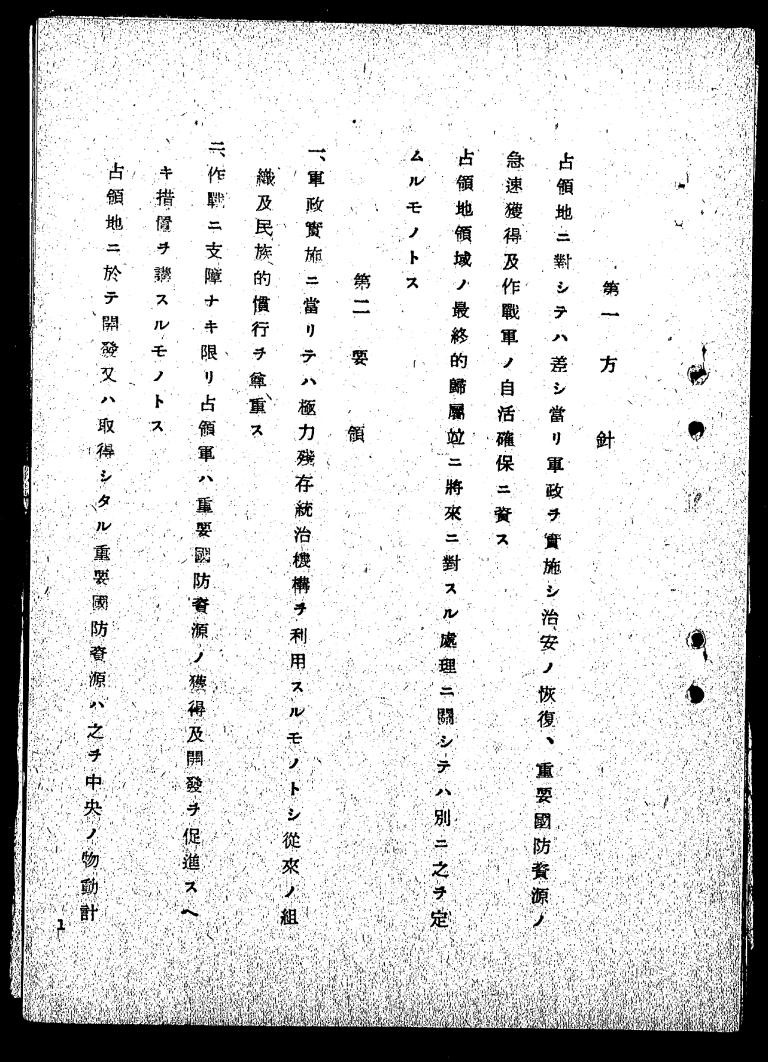 第一方針
占領地ニ對シテハ差シ當リ軍政ヲ實施シ治安ノ恢復、重要國防資源ノ
急速獲得及作戰軍ノ自活確保ニ資ス
占領地領域ノ最終的歸屬竝ニ將來ニ對スル處理ニ關シテハ別ニ之ヲ定
ムルモノトス
第二要領
一、軍政實施ニ當リテハ極力殘存統治機構ヲ利用スルモノトシ從來ノ組
織及民族的慣行ヲ尊重ス
二、作戰ニ支障ナキ限リ占領軍ハ重要國防資源ノ獲得及開發ヲ促進スヘ
キ措置ヲ講スルモノトス
占領地ニ於テ開發又ハ取得シタル重要國防資源ハ之ヲ中央ノ物動計
1